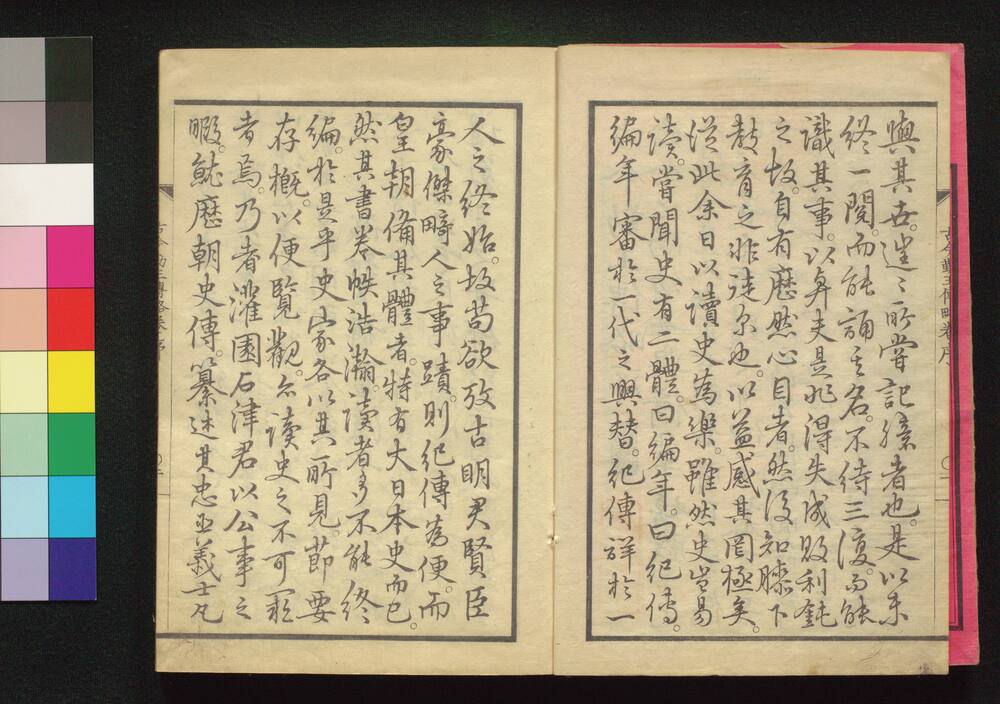 與其世。遑〻所嘗記臆者也。是以未
終一閲。而能誦其名。不待三復。而能
識其事。以弁夫是非得失成敗利鈍
之故。自有歴然心目者。然後知膝下
教育之非徒尓也。以益感其罔極矣。
従此余日以讀史為樂。雖然史豈易
讀。嘗聞史有二體。曰編年。曰紀傳。
編年審於一代之興替。紀傳詳於一
人之終始。故苟欲攷古明君賢臣
豪傑疇人之事蹟。則紀傳為便。而
皇朝備其體者。特有大日本史而已。
然其書巻帙浩瀚。讀者多不能終
編。於是乎史家各以其所見。節要
存概。以便覧觀。亦讀史之不可闕
者焉。乃者灌園石津君以公事之
暇。就歴朝史傳。纂述其忠臣義士凡
古今勤王傳略巻序